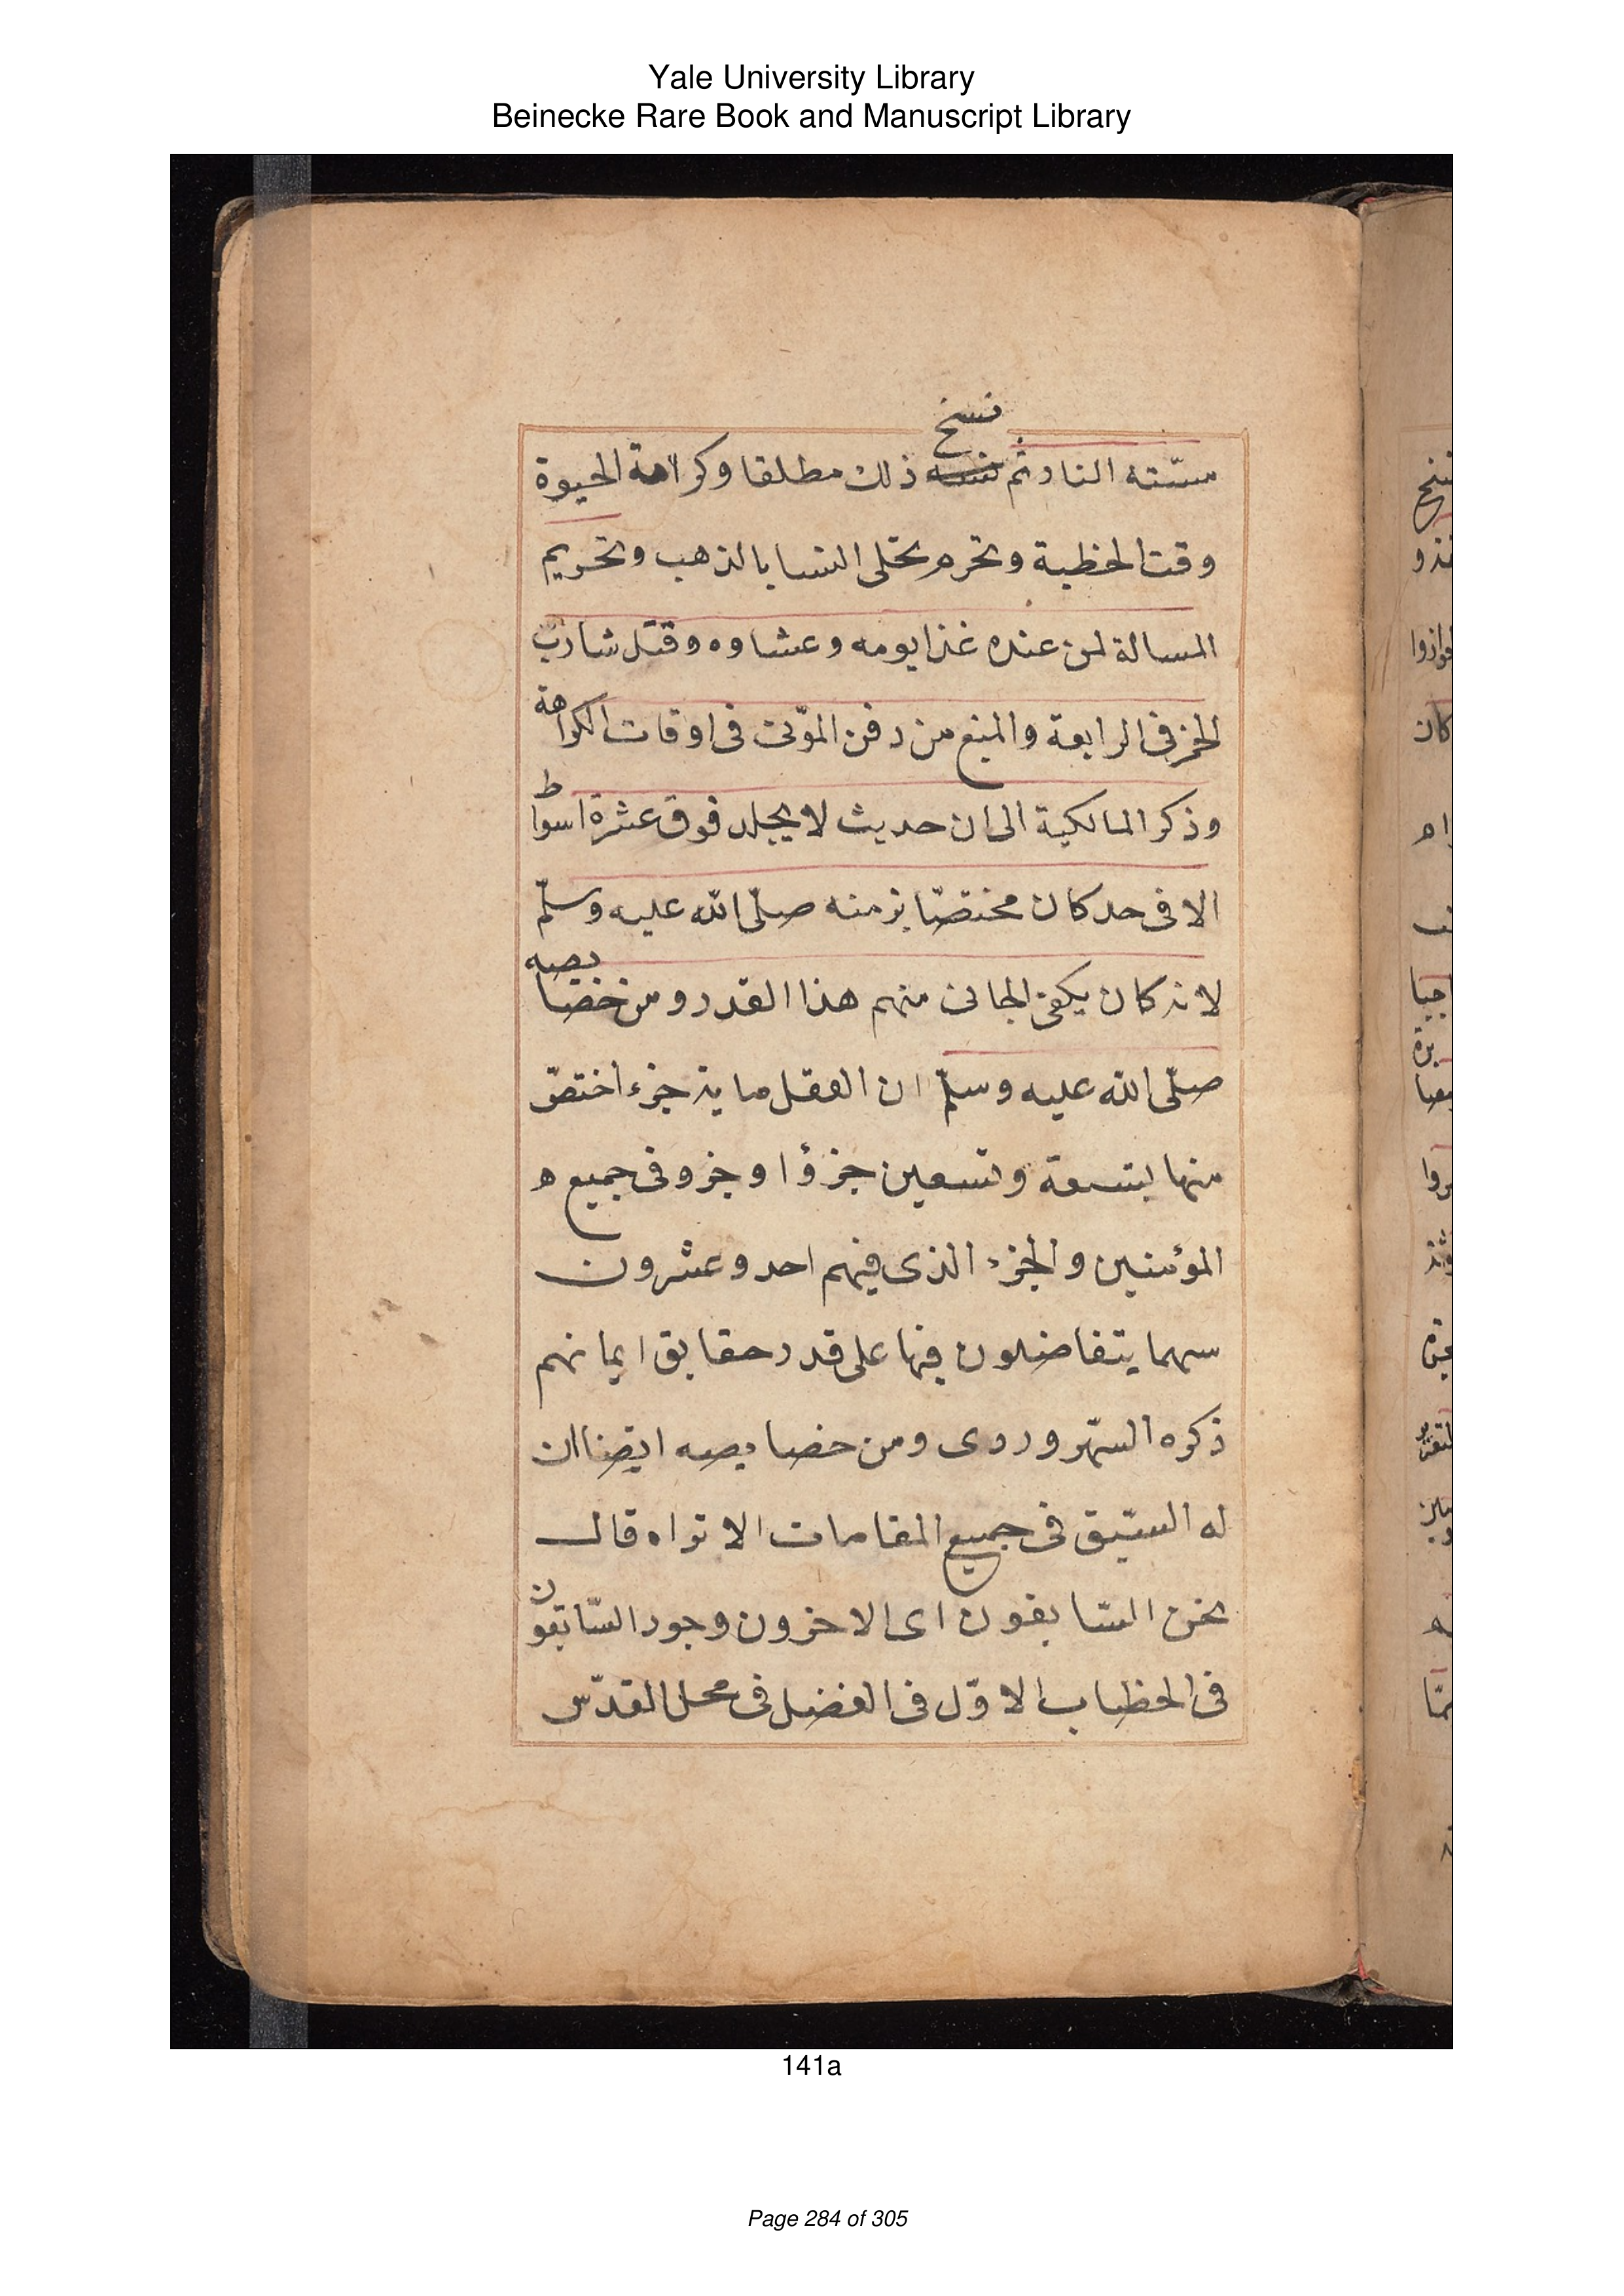 Yale University Library
Beinecke Rare Book and Manuscript Library
نسخ
مسّته النار ثم ذلك مطلقا وكراهة الحيوة
وقت الخطبة وتحرم تحلى النسا بالذهب وتحريم
المسالة لمن عنده غذا يومه وعشاوه وقتل شارب
الخمز فى الرابعة والمنع من دفن الموتى فى اوقات الكراهة
وذكر المالكية الى ان حديث لا يجلد فوق عشرة اسواط
الا فى حد كان مختصّا بزمنه صلّى الله عليه وسلّم
لانه كان يكفى الجانى منهم هذا القدر ومن خصايصه
صلّى الله عليه وسلّم ان العقل ماية جزء اختصّ
منها بتسعة وتسعين جزؤا وجزو فى جميع ه
المؤمنين والجزء الذى فيهم احد وعشرون
سهما يتفاضلون فيها على قدر حقايق ايمانهم
ذكره السّهروردى ومن خصايصه ايضا ان
له السّبق فى جميع المقامات الا تراه قال
نحن السّابقون اى الاخرون وجود السّابقون
فى الخطاب الاوّل فى الفضل فى محل القدّس
141a
Page 284 of 305